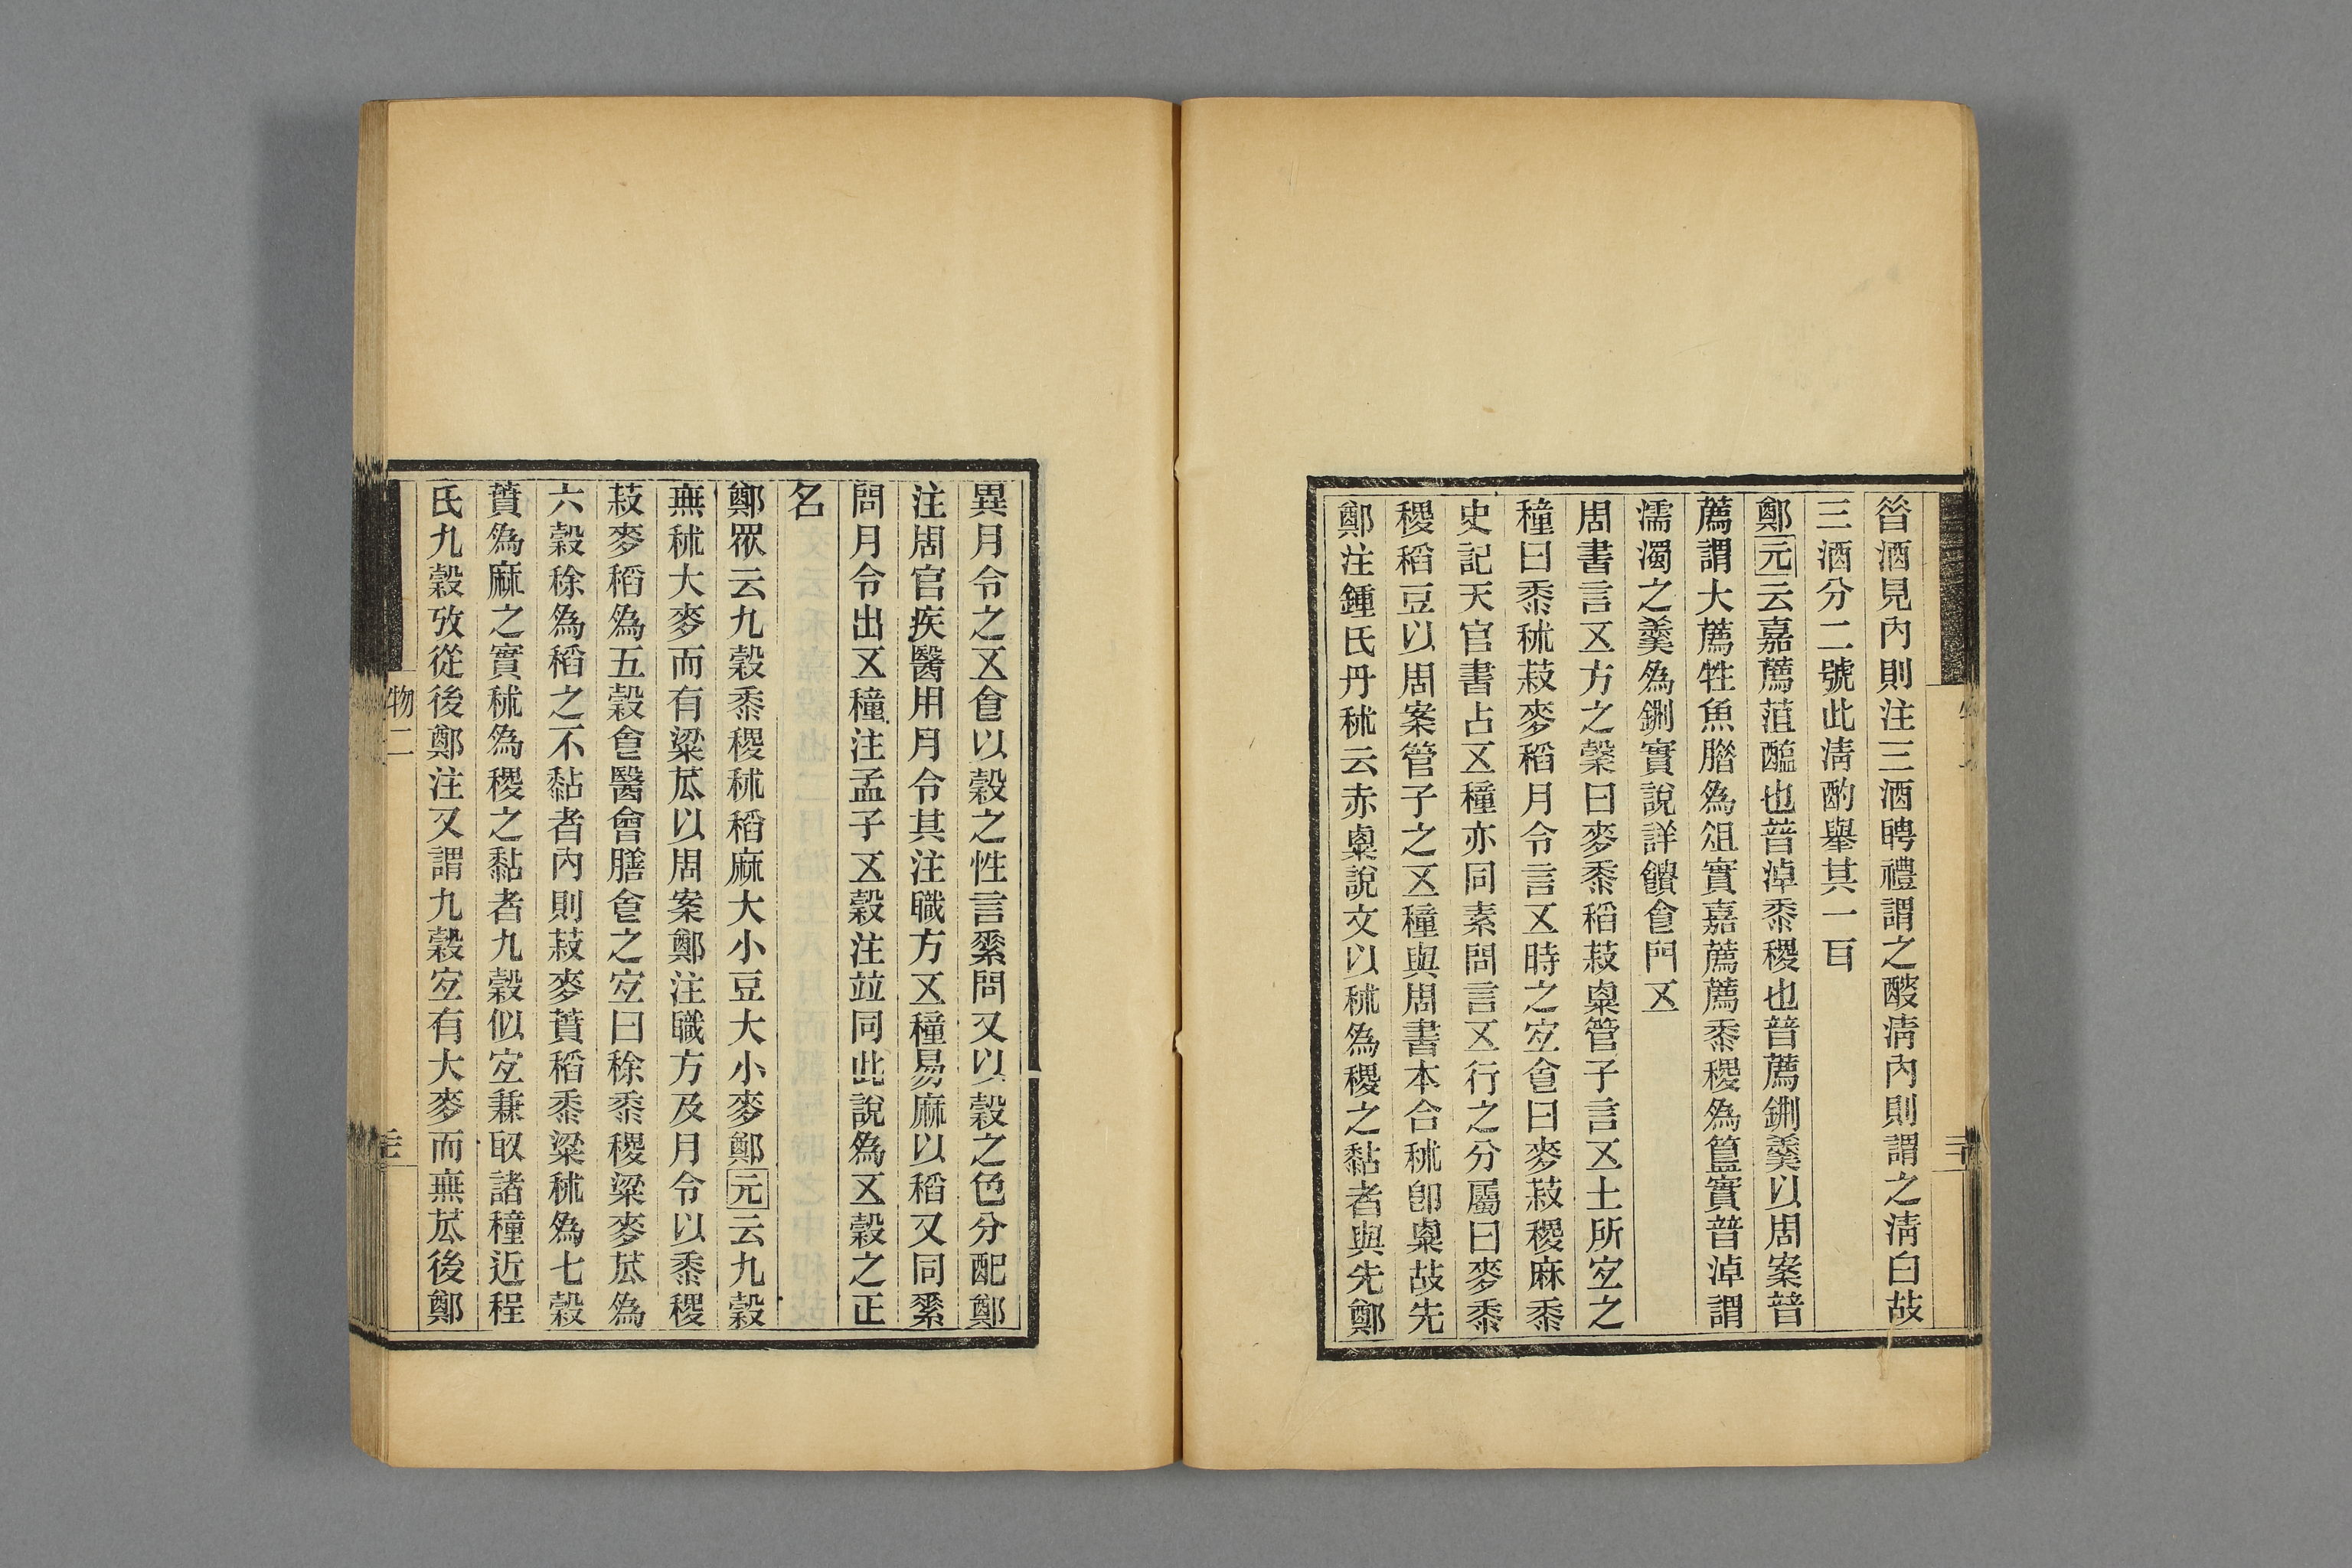 昝酒見內則注三酒聘禮謂之醙淸內則謂之淸白故
三酒分二號此淸酌舉其一耳
鄭元云嘉薦菹醢也普淖黍稷也普薦鉶羹以周案普
薦謂大薦牲魚腊為俎實嘉薦薦黍稷為簋實普淖謂
濡濁之羹為鉶實說詳饋食門㐅
周書言㐅方之穀曰麥黍稻菽粟管子言㐅土所宐之
穜曰黍秫菽麥稻月令言㐅時之宐食曰麥菽稷麻黍
史記天官書占㐅穜亦同素問言㐅行之分屬曰麥黍
稷稻豆以周案管子之㐅穜與周書本合秫卽粟故先
鄭注鍾氏丹秫云赤粟說文以秫為稷之黏者與先鄭
異月令之㐅食以穀之性言素問又以穀之色分配鄭
注周官疾醫用月令其注職方㐅穜易麻以稻又同素
問月令出㐅穜注孟子㐅穀注竝同此說為㐅穀之正
名
鄭眾云九穀黍稷秫稻麻大小豆大小麥鄭元云九穀
無秫大麥而有粱苽以周案鄭注職方及月令以黍稷
菽麥稻為五穀食醫會膳食之宐曰稌黍稷粱麥苽為
六穀稌為稻之不黏者內則菽麥蕡稻黍粱秫為七穀
蕡為麻之實秫為稷之黏者九穀似宐兼取諸穜近程
氏九穀攷從後鄭注又謂九穀宐有大麥而無苽後鄭
物二